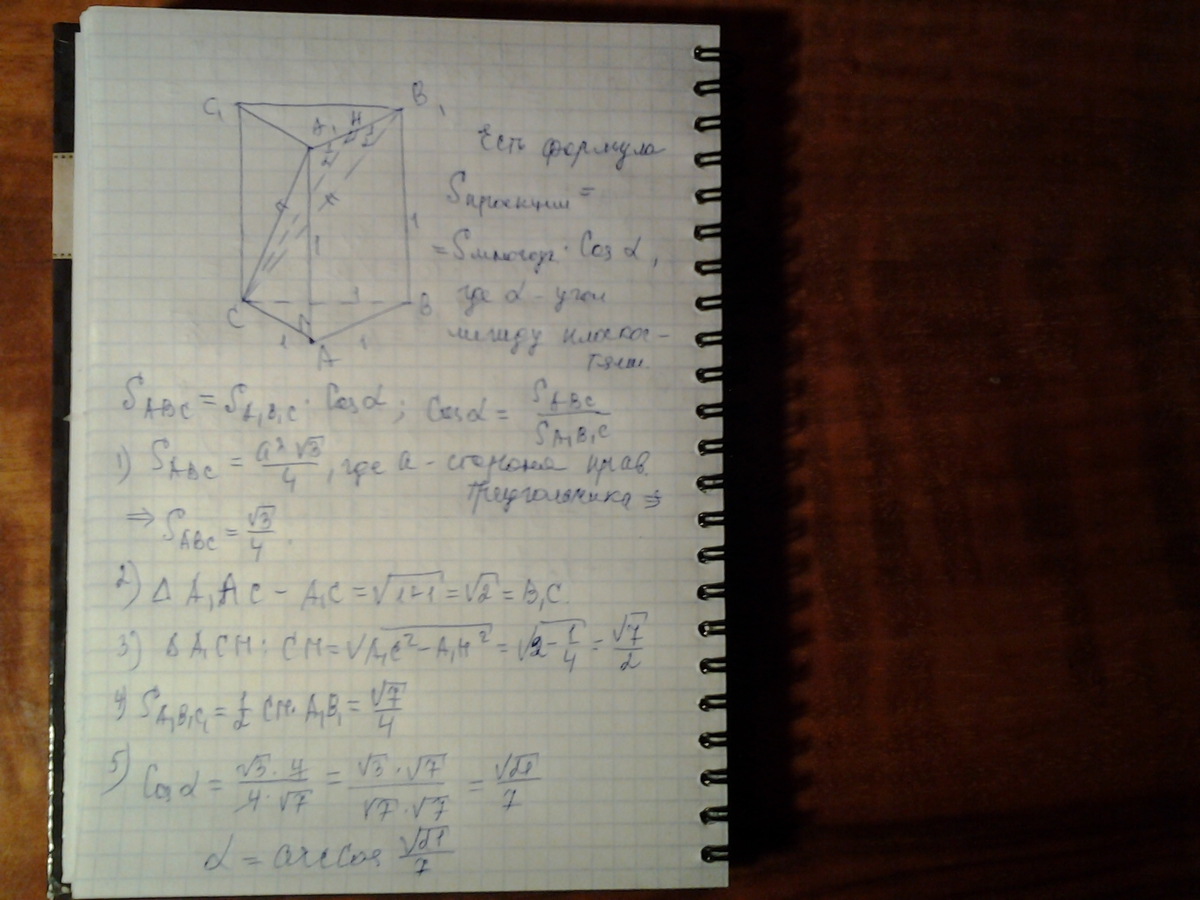 C₁ B₁
A₁ H
1/2 1/2
x x
1 1
1
C B
1 A 1
Есть формула
Sпроекции =
= Sмногоуг · Cos α,
где α – угол
между плоскос-
тями.
S_ABC = S_A₁B₁C · Cos α; Cos α = S_ABC / S_A₁B₁C
1) S_ABC = a²√3/4, где a – сторона прав.
треугольника ⇒
⇒ S_ABC = √3/4.
2) Δ A₁AC – A₁C = √1+1 = √2 = B₁C.
3) Δ A₁CH: CH = √A₁C² – A₁H² = √2 – 1/4 = √7/2
4) S_A₁B₁C₁ = 1/2 CH · A₁B₁ = √7/4
5) Cos α = √3 · 4 / 4 · √7 = √3 · √7 / √7 · √7 = √21/7
α = arccos √21/7